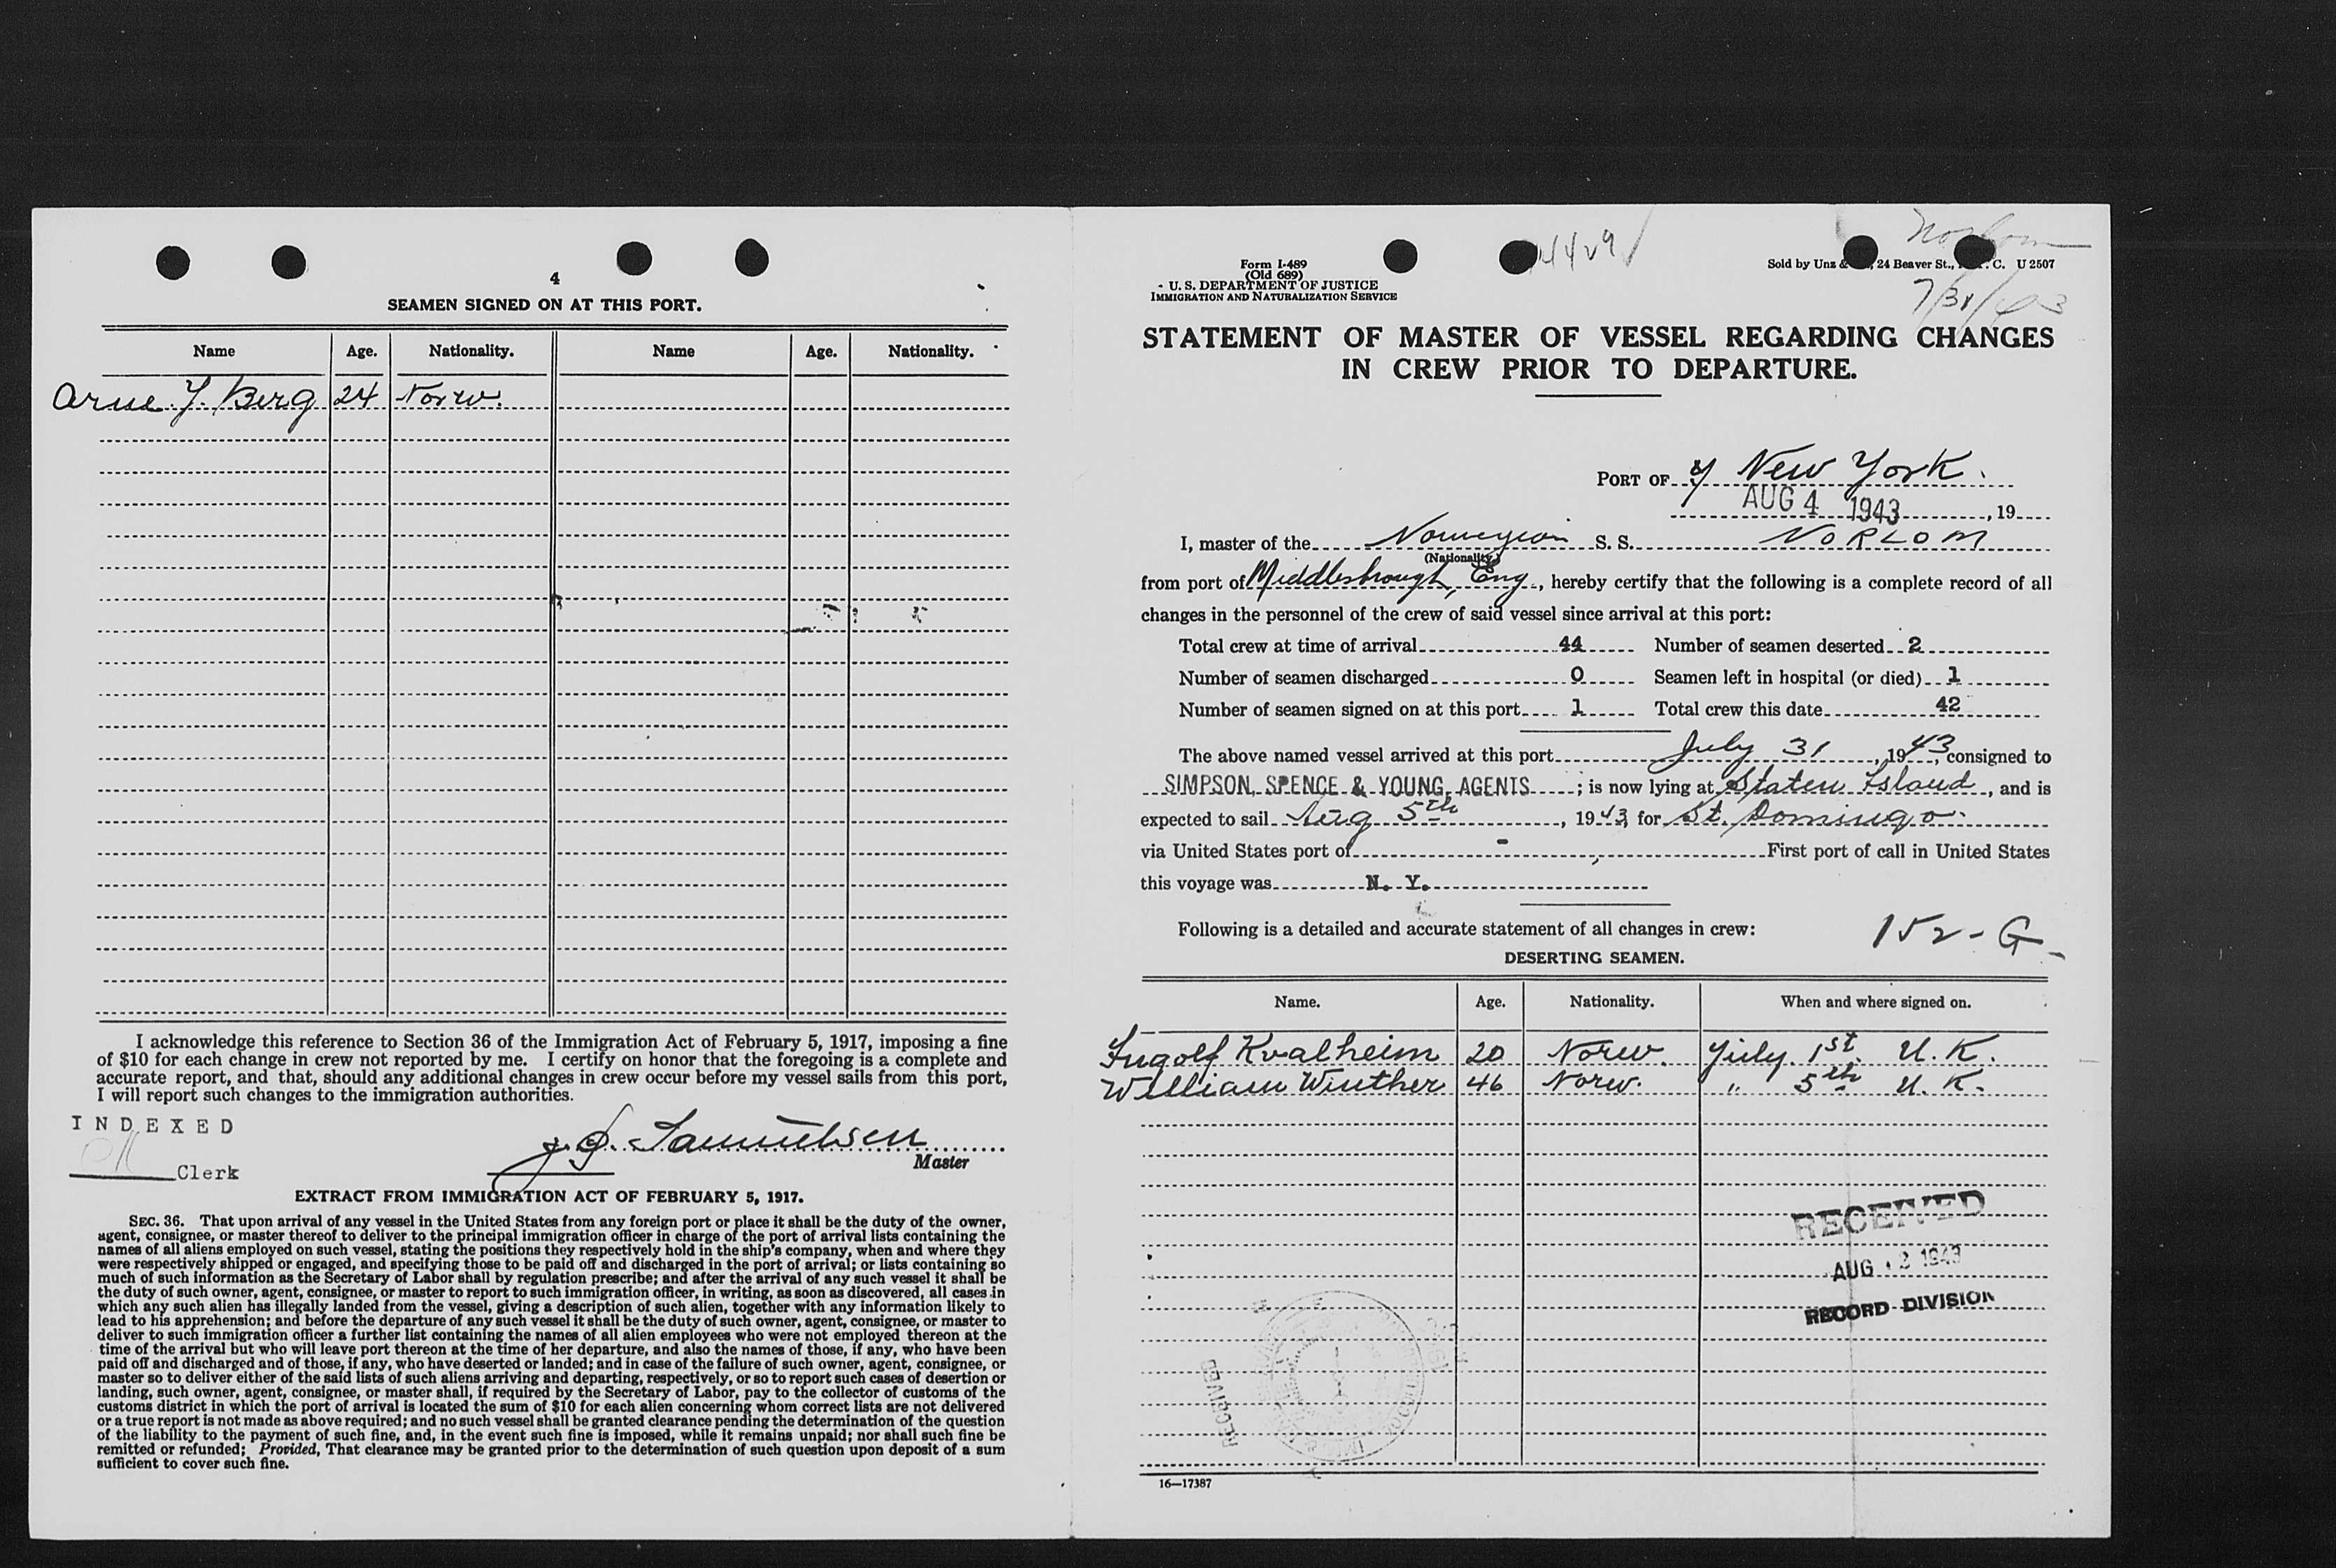 4
SEAMEN SIGNED ON AT THIS PORT.
Name Age. Nationality. Name Age. Nationality.
Arne Y. Berg 24 Norw.
I acknowledge this reference to Section 36 of the Immigration Act of February 5, 1917, imposing a fine
of $10 for each change in crew not reported by me. I certify on honor that the foregoing is a complete and
accurate report, and that, should any additional changes in crew occur before my vessel sails from this port,
I will report such changes to the immigration authorities.
INDEXED
Clerk
J. G. Samuelsen
Master
EXTRACT FROM IMMIGRATION ACT OF FEBRUARY 5, 1917.
SEC. 36. That upon arrival of any vessel in the United States from any foreign port or place it shall be the duty of the owner,
agent, consignee, or master thereof to deliver to the principal immigration officer in charge of the port of arrival lists containing the
names of all aliens employed on such vessel, stating the positions they respectively hold in the ship's company, when and where they
were respectively shipped or engaged, and specifying those to be paid off and discharged in the port of arrival; or lists containing so
much of such information as the Secretary of Labor shall by regulation prescribe; and after the arrival of any such vessel it shall be
the duty of such owner, agent, consignee, or master to report to such immigration officer, in writing, as soon as discovered, all cases in
which any such alien has illegally landed from the vessel, giving a description of such alien, together with any information likely to
lead to his apprehension; and before the departure of any such vessel it shall be the duty of such owner, agent, consignee, or master to
deliver to such immigration officer a further list containing the names of all alien employees who were not employed thereon at the
time of the arrival but who will leave port thereon at the time of her departure, and also the names of those, if any, who have been
paid off and discharged and of those, if any, who have deserted or landed; and in case of the failure of such owner, agent, consignee, or
master so to deliver either of the said lists of such aliens arriving and departing, respectively, or so to report such cases of desertion or
landing, such owner, agent, consignee, or master shall, if required by the Secretary of Labor, pay to the collector of customs of the
customs district in which the port of arrival is located the sum of $10 for each alien concerning whom correct lists are not delivered
or a true report is not made as above required; and no such vessel shall be granted clearance pending the determination of the question
of the liability to the payment of such fine, and, in the event such fine is imposed, while it remains unpaid; nor shall such fine be
remitted or refunded; Provided, That clearance may be granted prior to the determination of such question upon deposit of a sum
sufficient to cover such fine.
Form I-489
(Old 689)
U. S. DEPARTMENT OF JUSTICE
IMMIGRATION AND NATURALIZATION SERVICE
14429
Norlom
Sold by Unz & 24 Beaver St., C. U 2507
7/31/43
STATEMENT OF MASTER OF VESSEL REGARDING CHANGES
IN CREW PRIOR TO DEPARTURE.
PORT OF New York.
AUG 4 1943, 19
I, master of the Norwegian S. S. NORLOM
(Nationality)
from port of Middlesbrough, Eng., hereby certify that the following is a complete record of all
changes in the personnel of the crew of said vessel since arrival at this port:
Total crew at time of arrival 44 Number of seamen deserted 2
Number of seamen discharged 0 Seamen left in hospital (or died) 1
Number of seamen signed on at this port 1 Total crew this date 42
The above named vessel arrived at this port July 31, 1943, consigned to
SIMPSON, SPENCE & YOUNG, AGENTS; is now lying at Staten Island, and is
expected to sail Aug 5th, 1943, for St. Domingo.
via United States port of - First port of call in United States
this voyage was N. Y.
Following is a detailed and accurate statement of all changes in crew:
152-G-
DESERTING SEAMEN.
Name. Age. Nationality. When and where signed on.
Ingolf Kvalheim 20 Norw. July 1st. U.K.
William Winther 46 Norw. " 5th U.K.
RECEIVED
AUG 12 1943
RECORD DIVISION
RECEIVED
16—17387